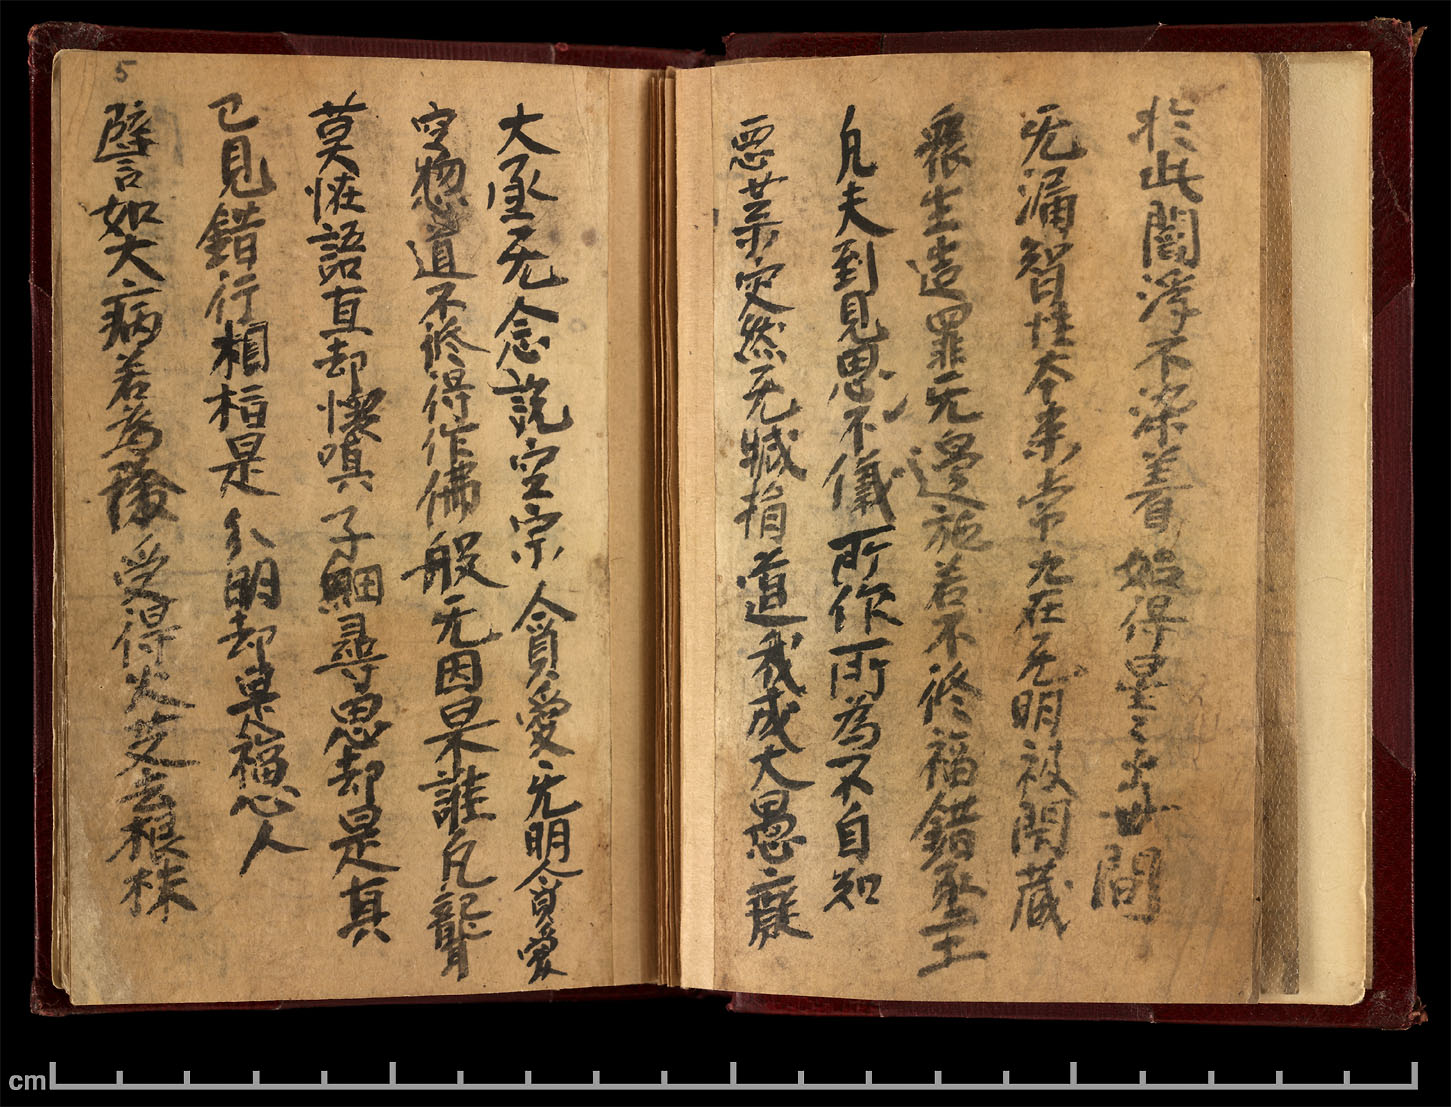 於此閻浮不染著始得是三界世間
无漏智性本来常九在无明被闇蔵
衆生造罪无邊施若不修福錯承王
凡夫到見思不儀所作所為不自知
惡業突然无賊捐道我成大愚癡
大丞无念説空宗貪愛无明貪愛
空惣道不修得作佛般无因果誰凡聖
莫恠語直却懷嗔子細尋思却是真
已見錯行相指是分明却果福心人
譬如大病若為療受得火芝去根株
5
cm